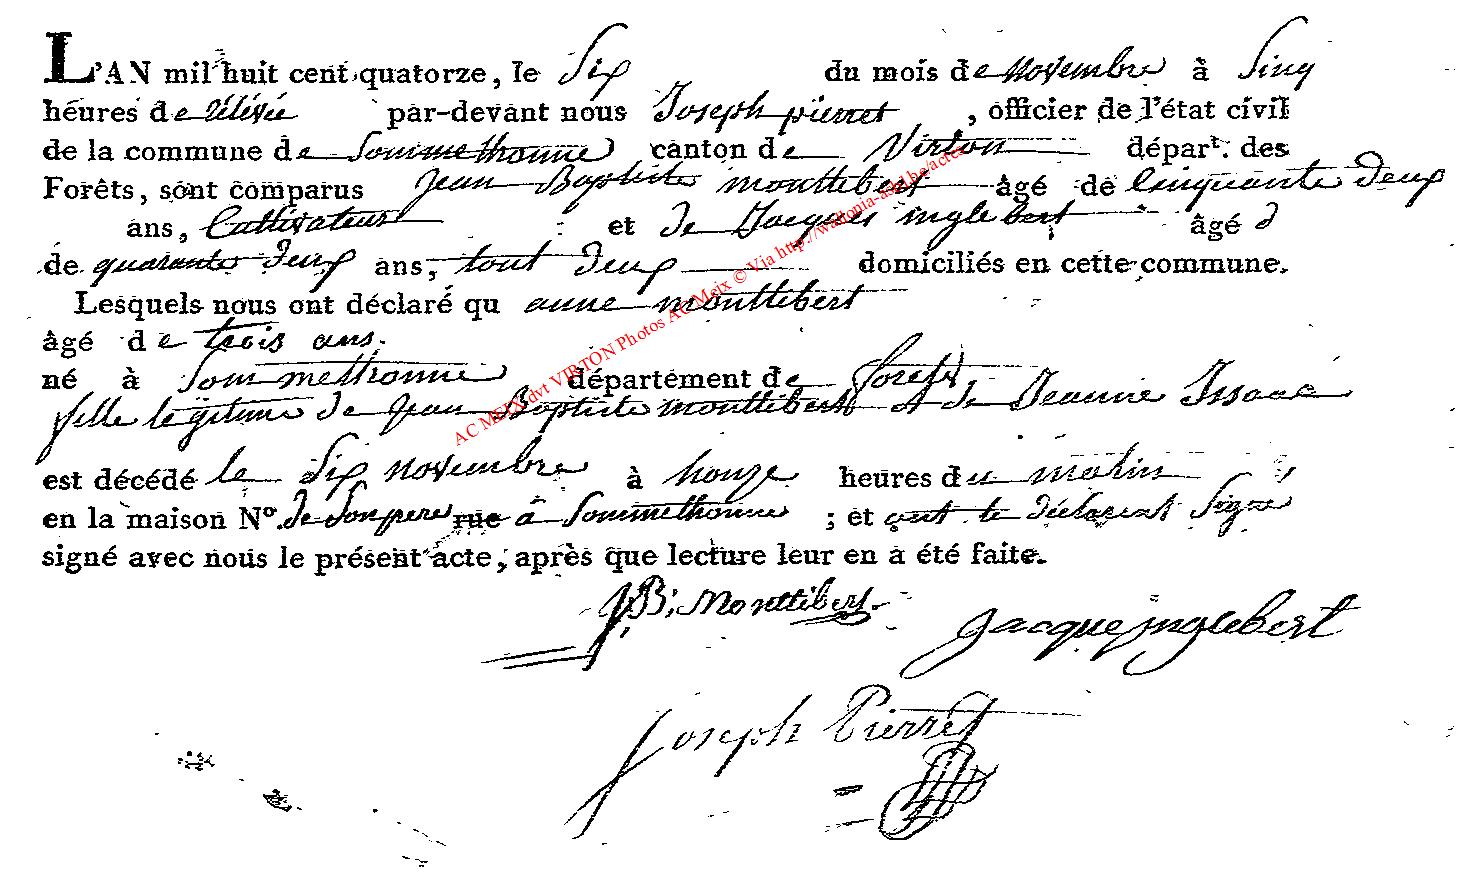 L'AN mil huit cent quatorze, le Six du mois de novembre à Sinq
heures de rélévée par-devant nous Joseph pierret, officier de l'état civil
de la commune de Sommethonne canton de Virton départ. des
Forêts, sont comparus Jean Baptiste monttibert âgé de Cinquante deux
ans, Cultivateur et de Jacques inglebert âgé d
de quarante deux ans, tout deux domiciliés en cette commune.
Lesquels nous ont déclaré qu anne monttibert
âgé de trois ans.
né à Sommethonne département de forets
fille legitime de Jean Baptiste monttibert et de Jeanne Issaac
est décédé le Six novembre à honze heures du matin
en la maison N.º de Son pere rue à Sommethonne ; et ont le déclarant Signé
signé avec nous le présent acte, après que lecture leur en a été faite.
JB; Monttibert.
Jacque inglebert
Joseph Pierret
AC MEIX dvt VIRTON Photos AC Meix © Via http://wallonia-asbl.be/actes